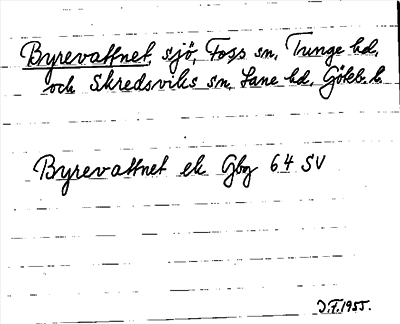 Byrevattnet, sjö, Foss sn, Tunge hd,
och Skredsviks sn, Lane hd, Göteb. l.
Byrevattnet ek Gbg 64 SV
J.F. 1955.